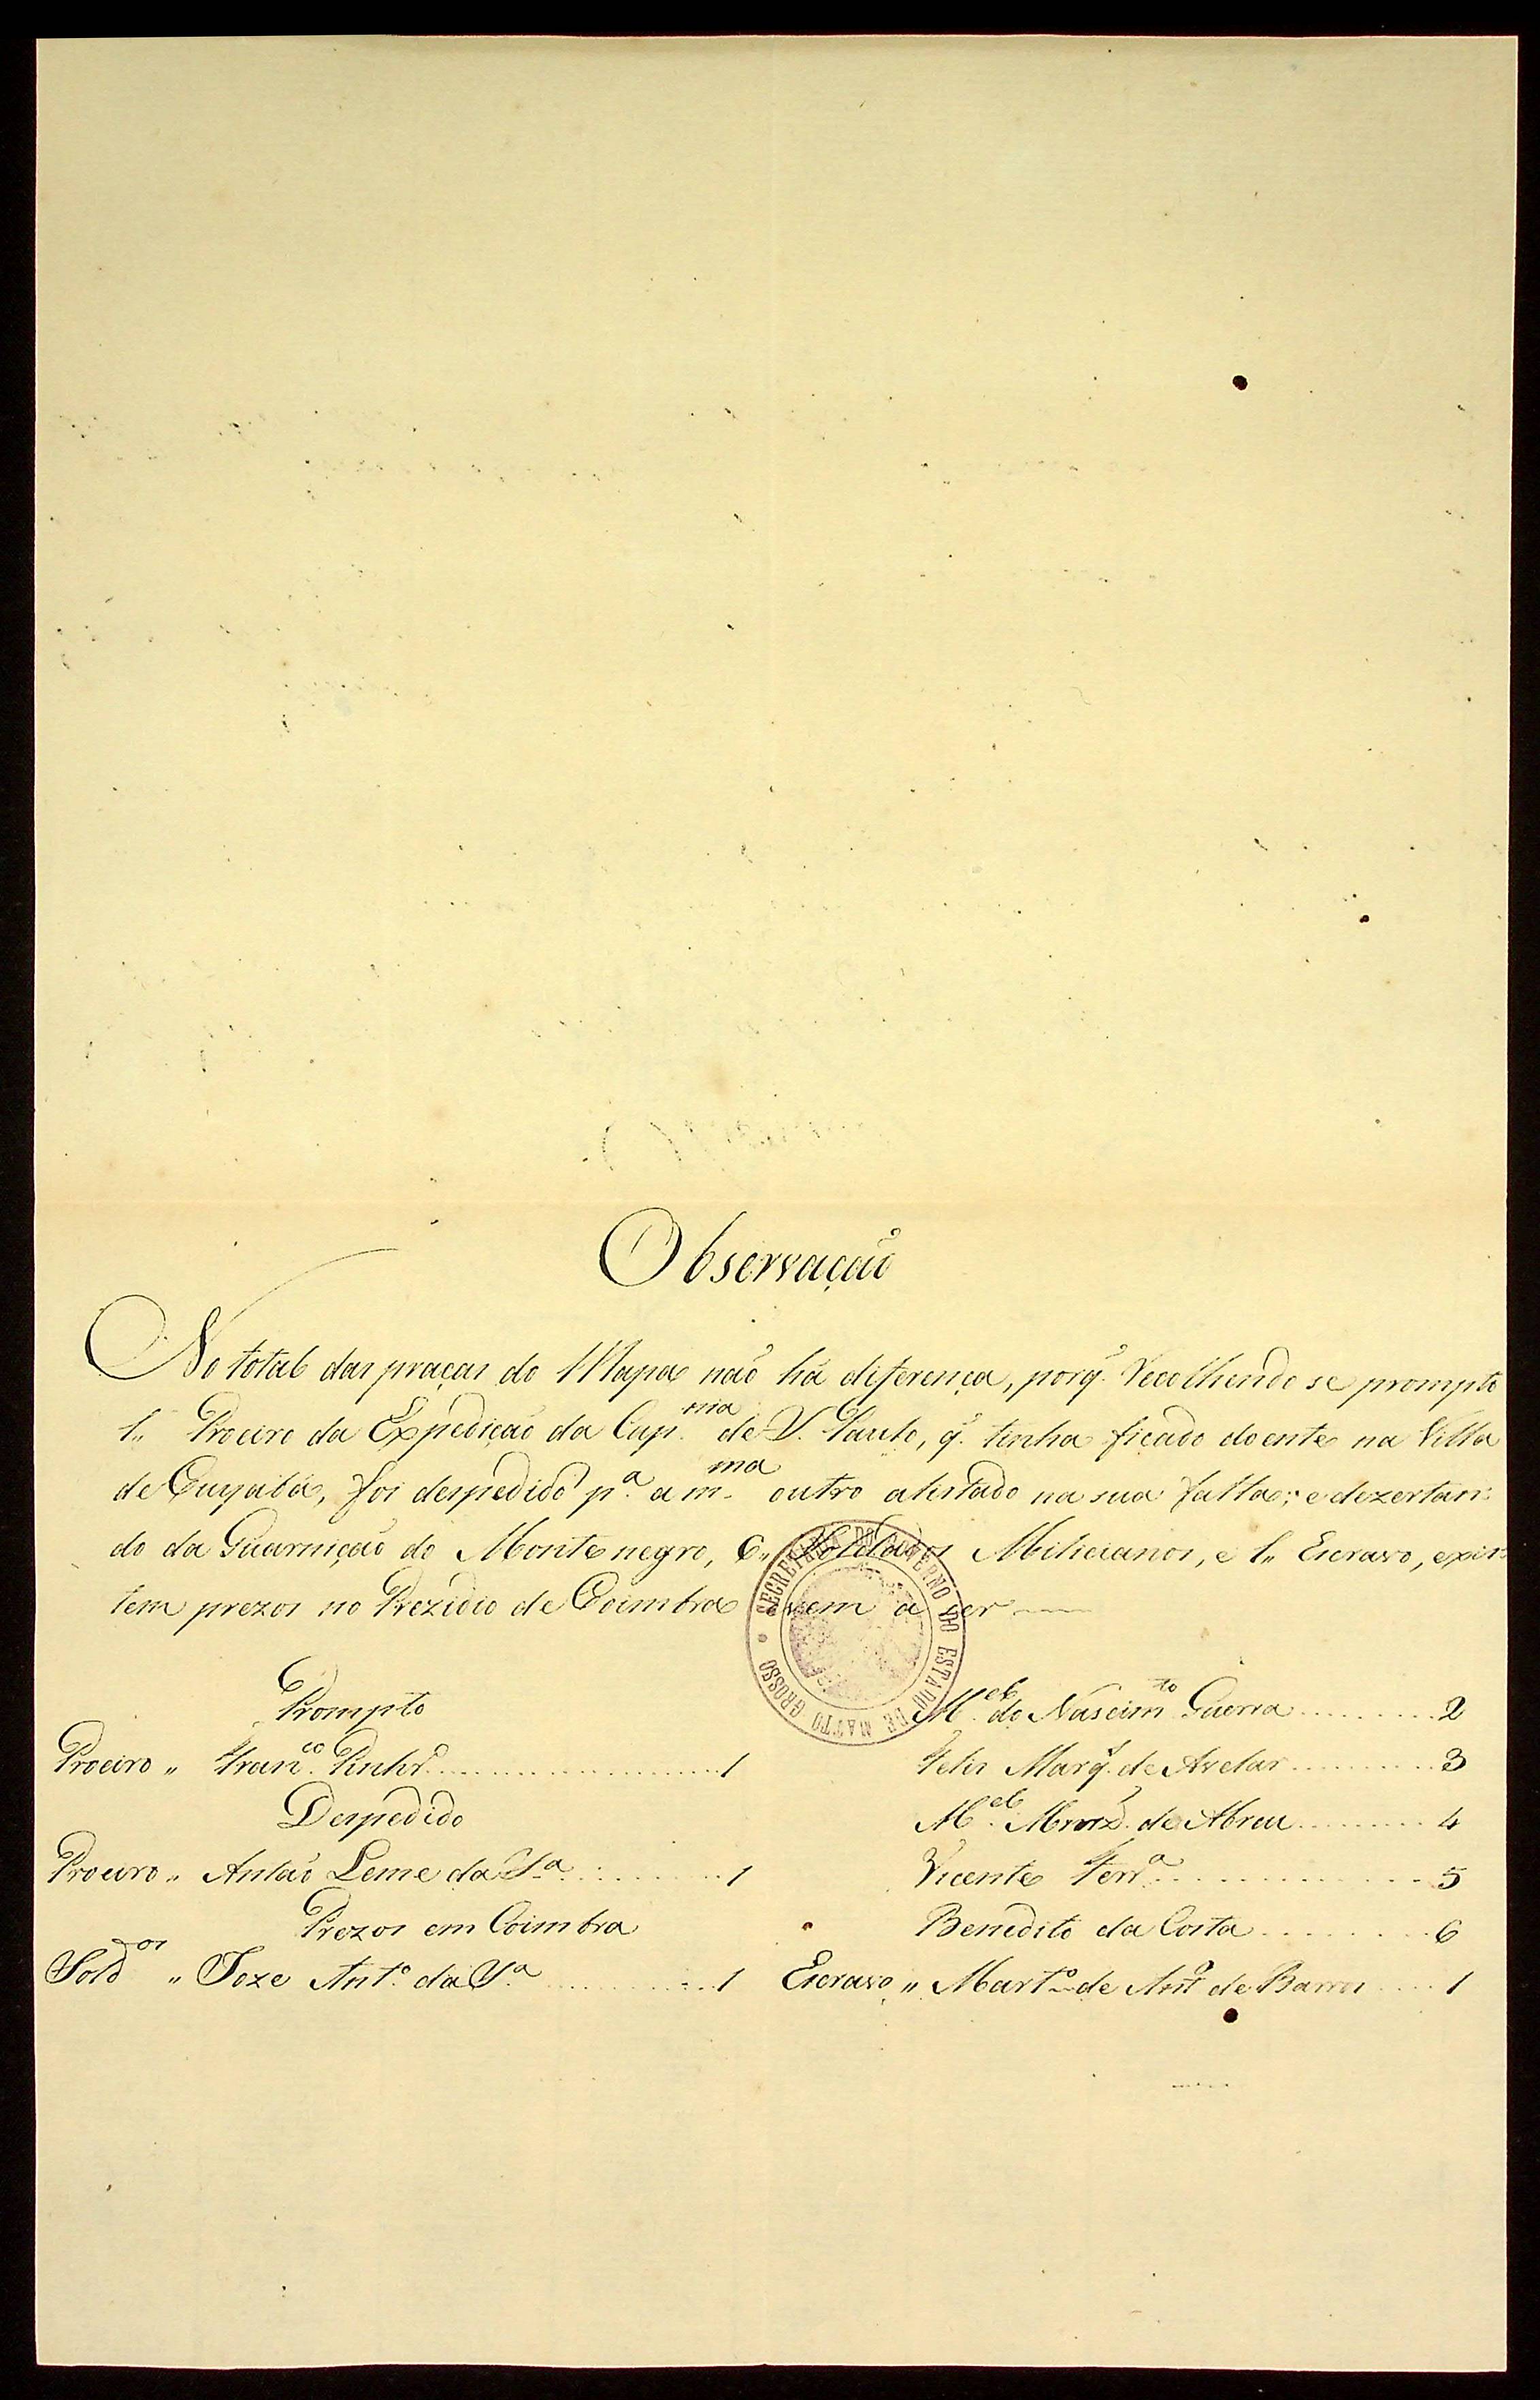 Observação
No total das praças do Mapa não há diferença, porq. Recolhendo se prompto
1,, Proeiro da Expedição da Cap.nia de S. Paulo, q. tinha ficado doente na Villa
de Cuyabá, foi despedido p.a a m.ma outro alistado na sua falta; e dezertan=
do da Guarnição do Monte negro, 6,, Soldados Milicianos, e 1,, Escravo, exis=
tem prezos no Prezidio de Coimbra vem a ser
Prompto
Proeiro ,, Fran.co Pinhr.o 1
Despedido
Proeiro ,, Antão Leme da S.a 1
Prezos em Coimbra
Sold.os ,, Joze Ant.o da S.a 1
M.el do Nascim.to Guerra 2
Felis Marq.s de Avelar 3
M.el de Abreu 4
Vicente Ferr.a 5
Benedito da Costa 6
Escravo ,, Mart.o de Ant.o de Barros 1
SECRETARIA DO GOVERNO DO ESTADO DE MATTO GROSSO